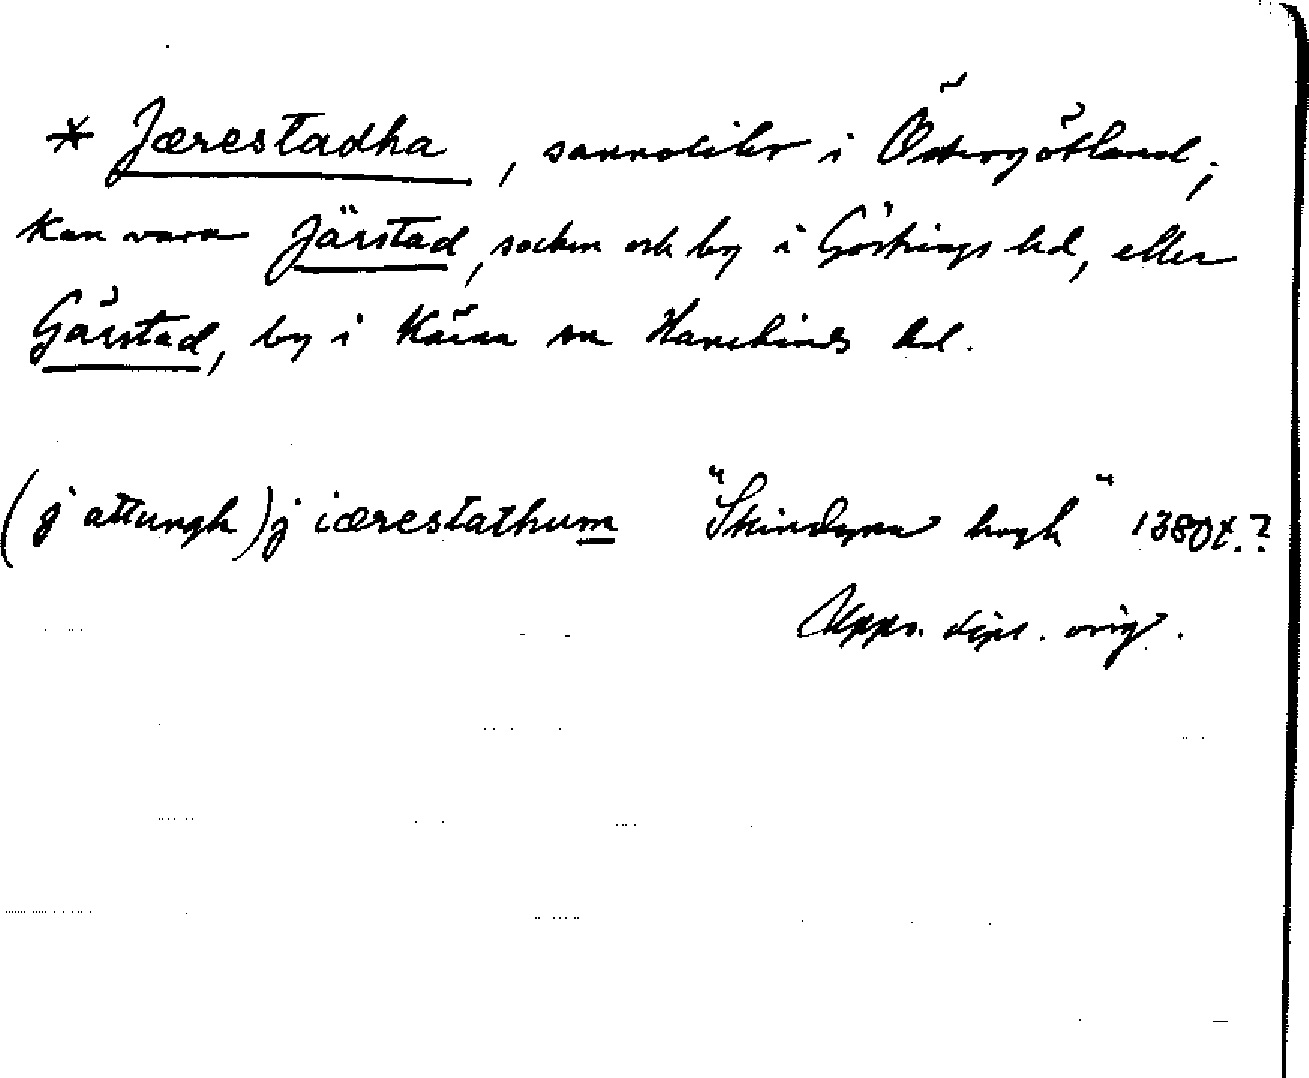 * Jærestadha, sannolikt i Östergötland;
kan vara Järstad, socken och by i Göstrings hd, eller
Gärstad, by i Kärna sn Hanekinds hd.
(j attungh) j iærestathum "Skindyna hugh" 1380t.?
Upps. dipl. orig.